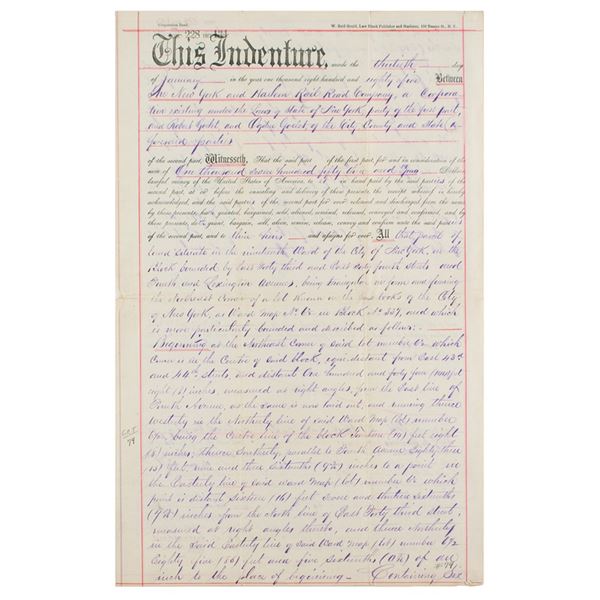 Corporation Deed.
W. Reid Gould, Law Blank Publisher and Stationer, 168 Nassau St., N. Y.
This Indenture, made the thirtieth day
of January in the year one thousand eight hundred and eighty five Between
The New York and Harlem Rail Road Company, a Corpora
tion existing under the Laws of State of New York, party of the first part,
and Robert Goelet and Ogden Goelet of the City County and State a
foresaid parties
of the second part, Witnesseth, That the said part of the first part, for and in consideration of the
sum of One thousand Dollars
lawful money of the United States of America, to it in hand paid by the said parties of the
second part, at or before the ensealing and delivery of these presents, the receipt whereof is hereby
acknowledged, and the said parties of the second part for ever released and discharged from the same
by these presents, hath granted, bargained, sold, aliened, remised, released, conveyed and confirmed, and by
these presents, doth grant, bargain, sell, alien, remise, release, convey and confirm unto the said parties
of the second part, and to their heirs and assigns for ever. All that parcel of
Land Situate in the nineteenth Ward of the City of New York, in the
Block bounded by East Forty third and East forty fourth Streets and
Fourth and Lexington Avenues, being triangular in form and forming
the Northeast Corner of a lot known on the tax books of the City
of New York, as Ward Map No. in Block No. and which
is more particularly bounded and described as follows:
Beginning at the Northeast Corner of said lot number which
Corner is in the Centre of said block, equi-distant from East 43rd
and 44th Streets, and distant One hundred and forty four (144) feet
eight (8) inches, measured at right angles, from the East line of
Fourth Avenue, as the same is now laid out, and running thence
westerly on the Northerly line of said Ward Map (lot) number
being the Centre line of the block feet eight
(8) inches; thence Southerly, parallel to Fourth Avenue Eighty three
feet nine and three Sixteenths inches to a point in
the Easterly line of said ward Map (lot) number which
point is distant Sixteen (16) feet and thirteen Sixteenths
inches from the North line of East Forty third Street,
measured at right angles thereto, and thence Northerly
in the said Easterly line of said Ward Map (lot) number
Eighty five (85) feet and five Sixteenths of an
inch to the place of beginning. Containing Six